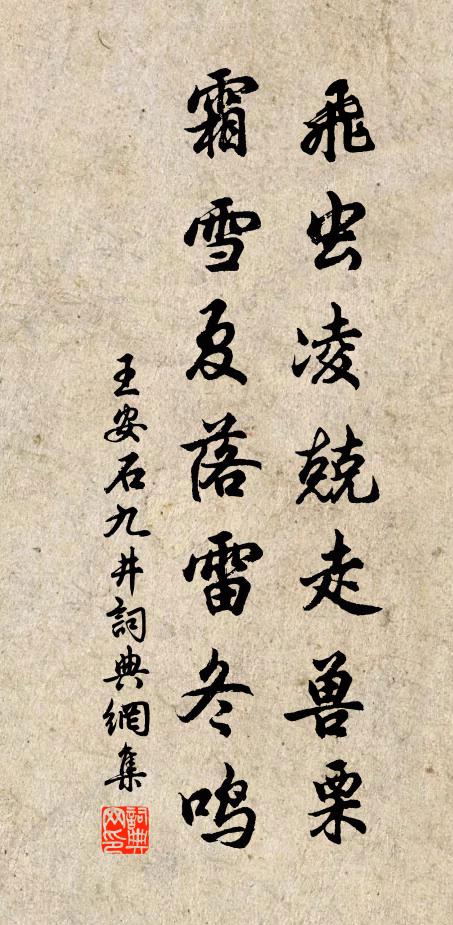 飛虫凌兢走兽栗
霜雪夏落雷冬鸣
王安石九井詞典網集
詞典网印